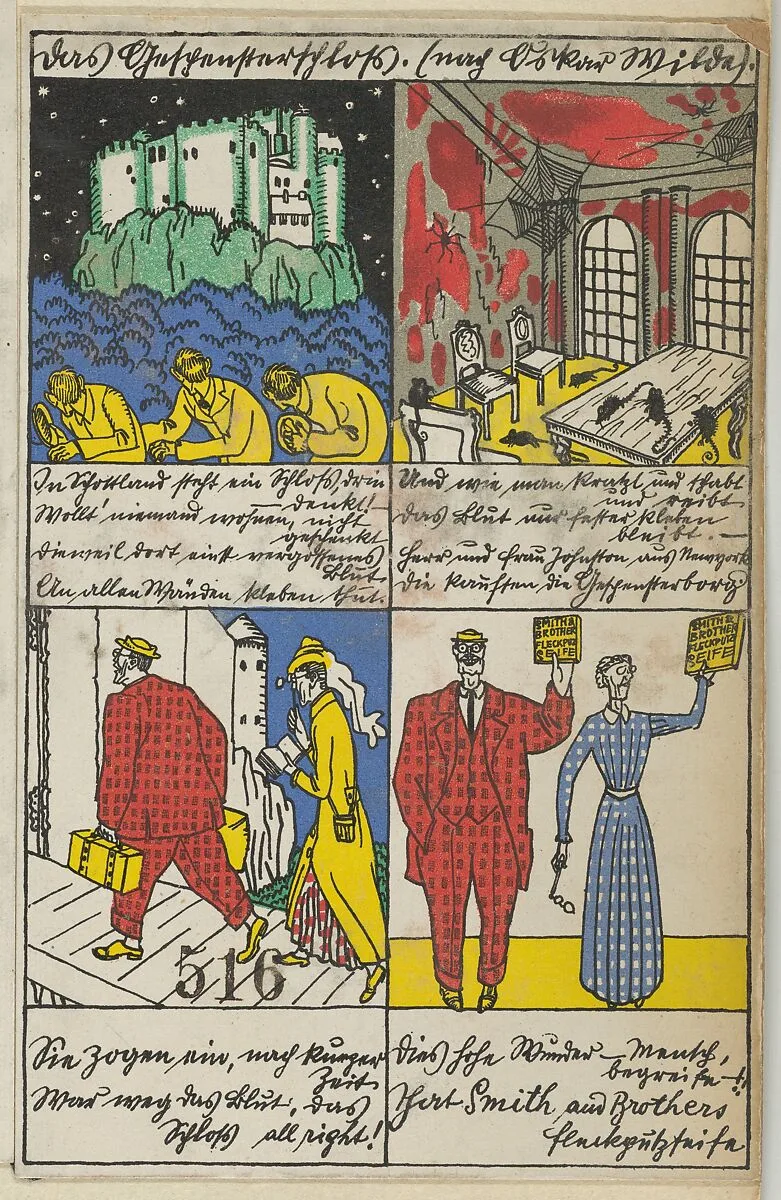 Das Gespensterschloss. (nach Oskar Wilde).
In Schottland steht ein Schloss, drin
— denkt! —
Wollt' niemand wohnen, nicht
geschenkt
Dieweil dort einst vergossenes
Blut
An allen Wänden kleben thut.
Und wie man kratzt und schabt
und reibt
Das Blut nur fester kleben
bleibt. —
Herr und Frau Johnston aus Newyork
Die kauften die Gespensterborg
SMITH &
BROTHER
FLECKPUTZ
SEIFE
SMITH &
BROTHER
FLECKPUTZ
SEIFE
516
Sie zogen ein, nach kurzer
Zeit
War weg das Blut, das
Schloss all right!
Dies hohe Wunder — Mensch,
begreife —!!
That Smith and Brothers
Fleckputzseife